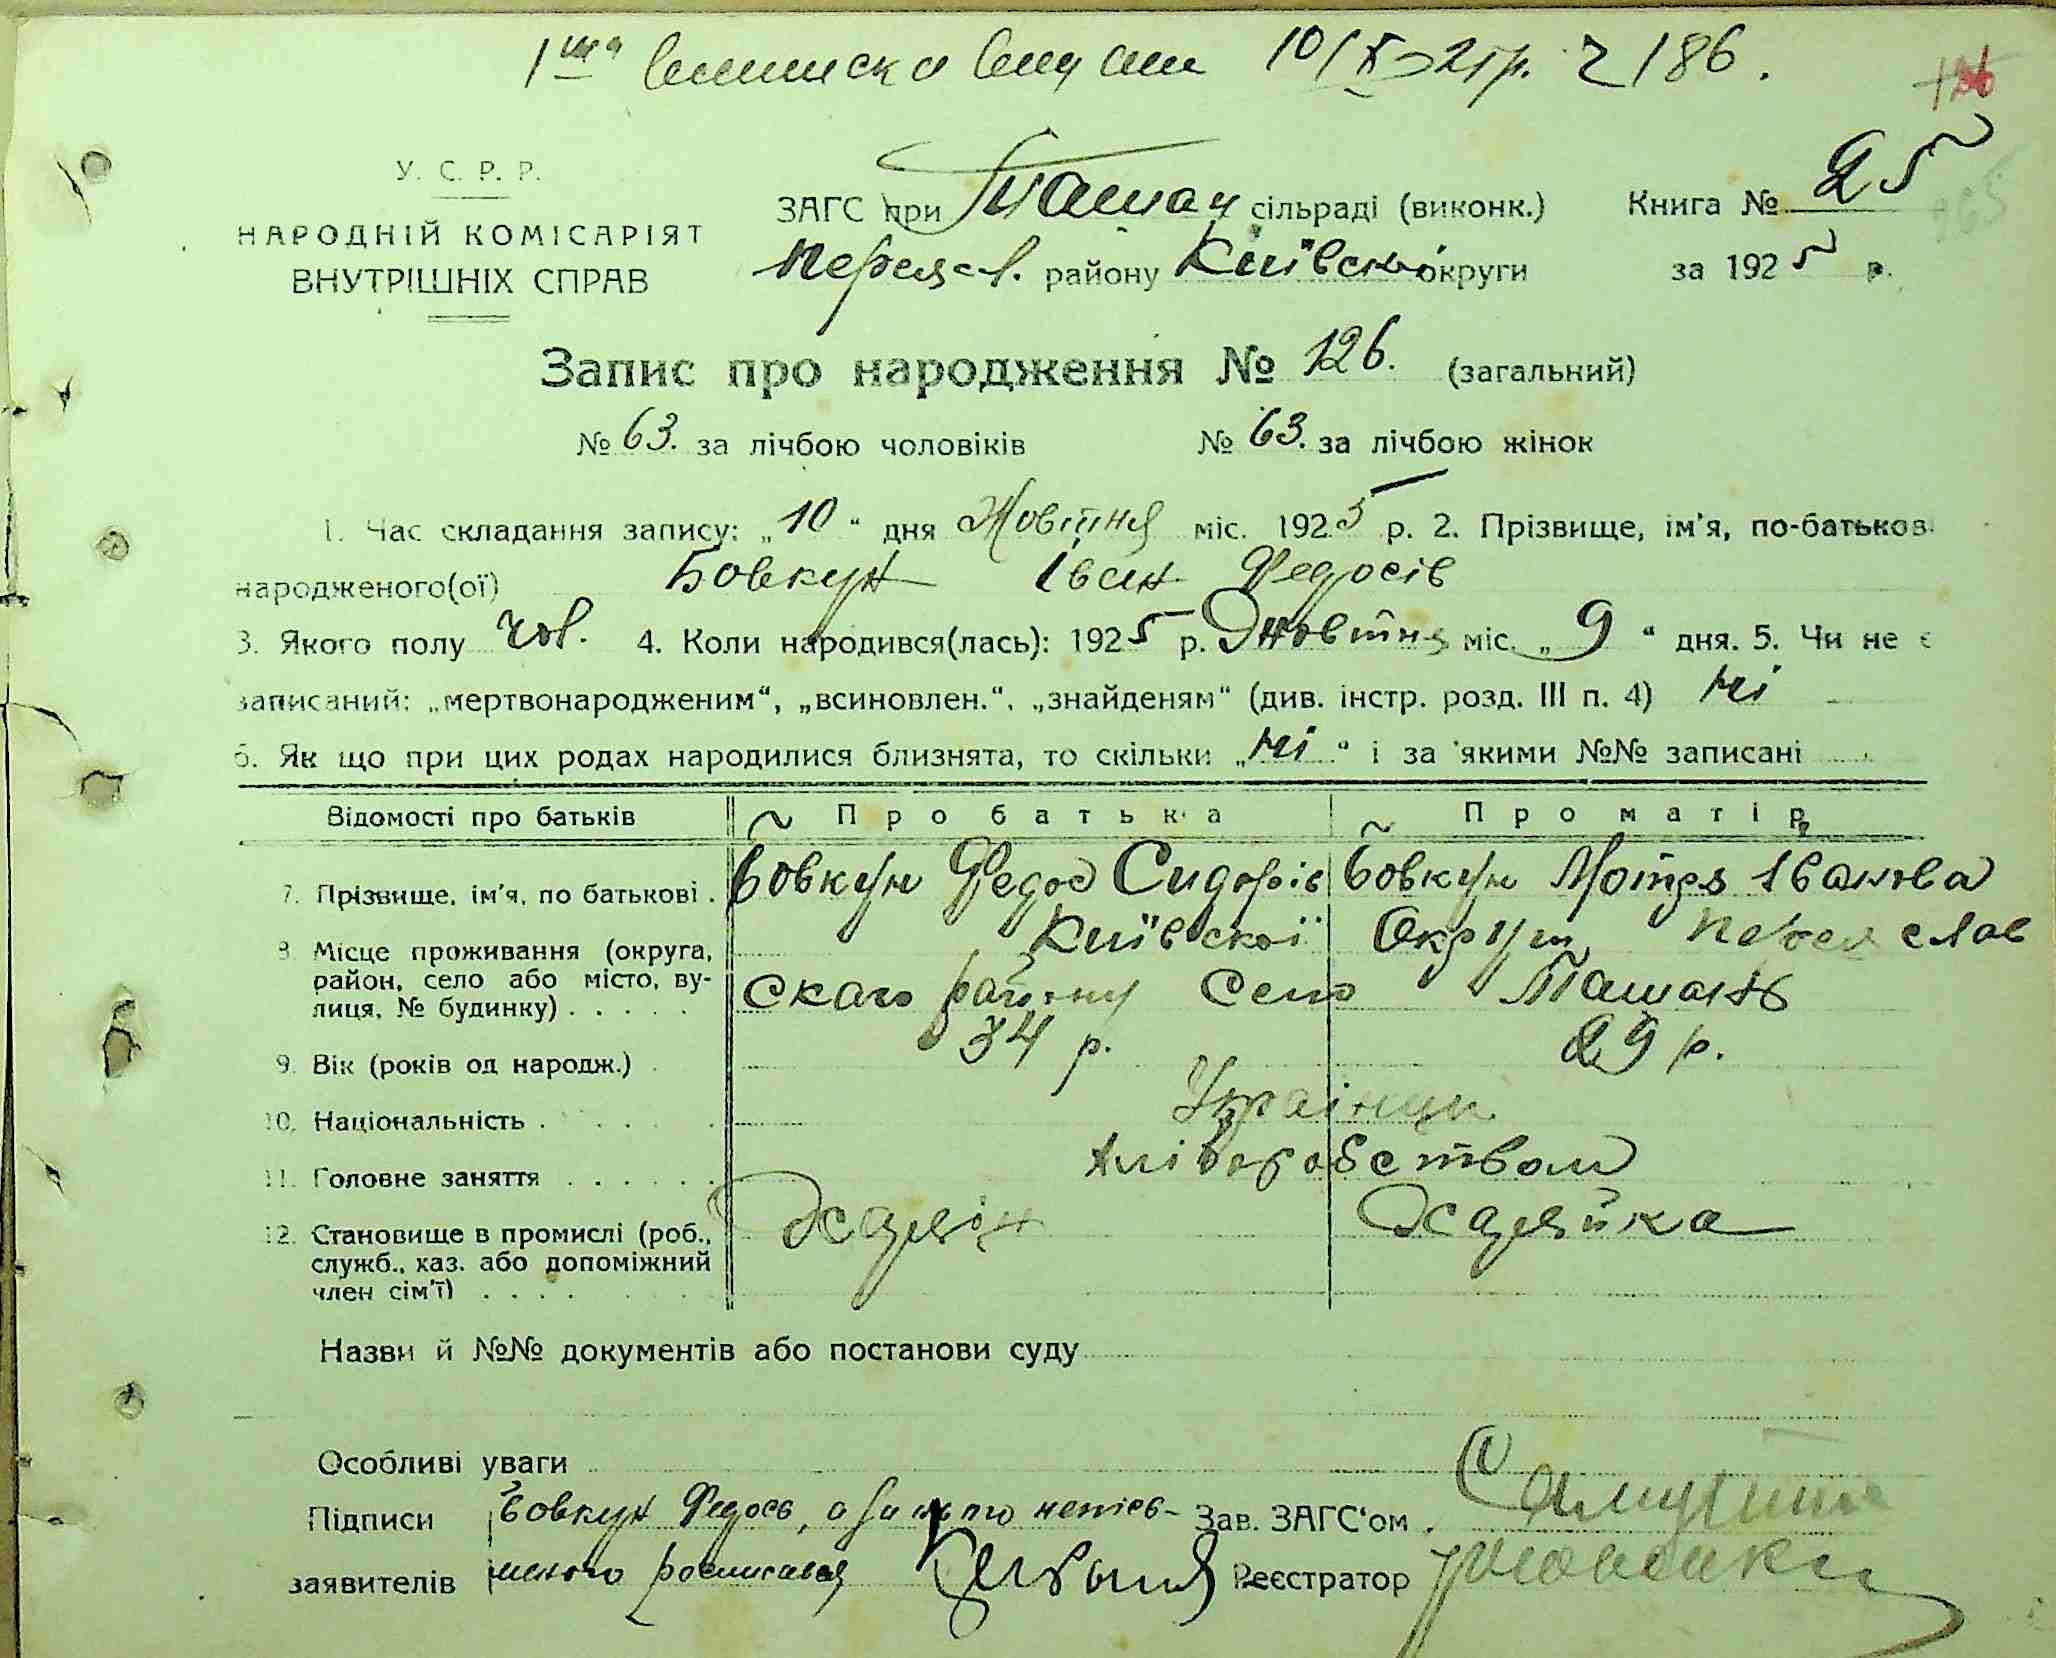 1ша виписка видана 10/X 25 р. № 186.
126
У. С. Р. Р.
НАРОДНІЙ КОМІСАРІЯТ
ВНУТРІШНІХ СПРАВ
ЗАГС при Ташан сільраді (виконк.) Книга № 25
Переясл. району Київськ округи за 1925 р.
Запис про народження № 126. (загальний)
№ 63. за лічбою чоловіків № 63. за лічбою жінок
1. Час складання запису: „10“ дня Жовтня міс. 1925 р. 2. Прізвище, ім'я, по-батьков.
народженого(ої) Бовкун Іван Федосів
3. Якого полу чов. 4. Коли народився(лась): 1925 р. Жовтня міс. „9“ дня. 5. Чи не є
записаний: „мертвонародженим“, „всиновлен.“, „знайденям“ (див. інстр. розд. III п. 4) ні
6. Як що при цих родах народилися близнята, то скільки „ні“ і за якими №№ записані
Відомості про батьків Про батька Про матір
7. Прізвище, ім'я, по батькові . Бовкун Федос Сидорів Бовкун Мотря Іванова
8. Місце проживання (округа, Київської Округи, Переяслав
район, село або місто, ву- скаго району Село Ташань
лиця, № будинку) . . . . .
9. Вік (років од народж.) 34 р. 29 р.
10. Національність . Українци
11. Головне заняття . . . . . . Хліборобством
12. Становище в промислі (роб., Хазяін Хазяйка
служб., хаз. або допоміжний
член сім'ї) . . . .
Назви й №№ документів або постанови суду
Особливі уваги
Підписи Бовкун Федось, а за його непісь- Зав. ЗАГС'ом
заявителів меного росписався Реєстратор